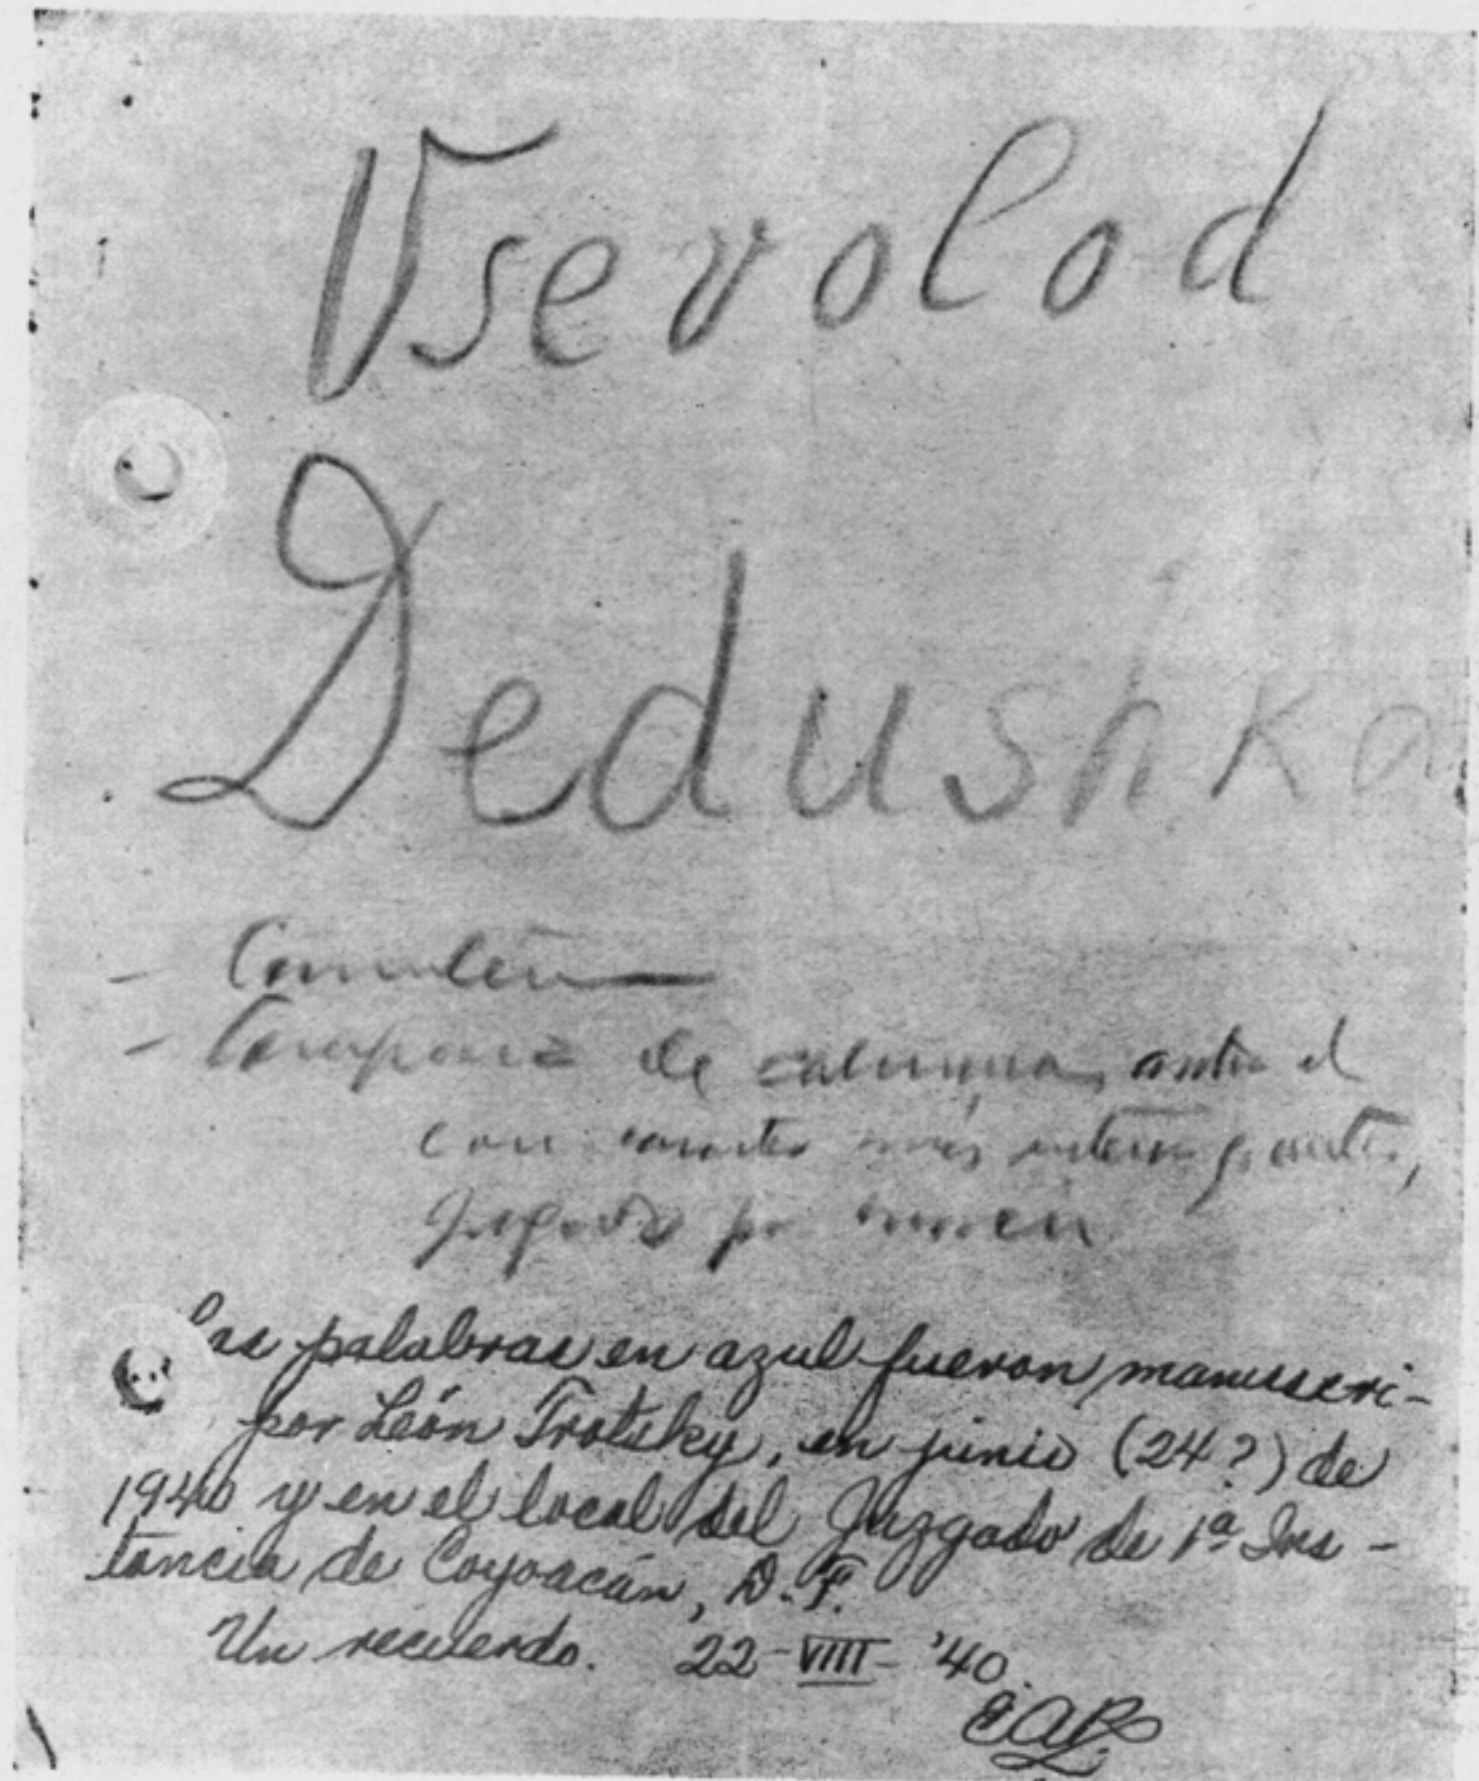 Vsevolod
Dedushka
- Campaña de calumnia, ante el
con más
por
Las palabras en azul fueron manuscri-
por León Trotsky, en junio (24?) de
1940 y en el local del Juzgado de 1ª Ins-
tancia de Coyoacán, D.F.
Un recuerdo. 22-VIII-'40.